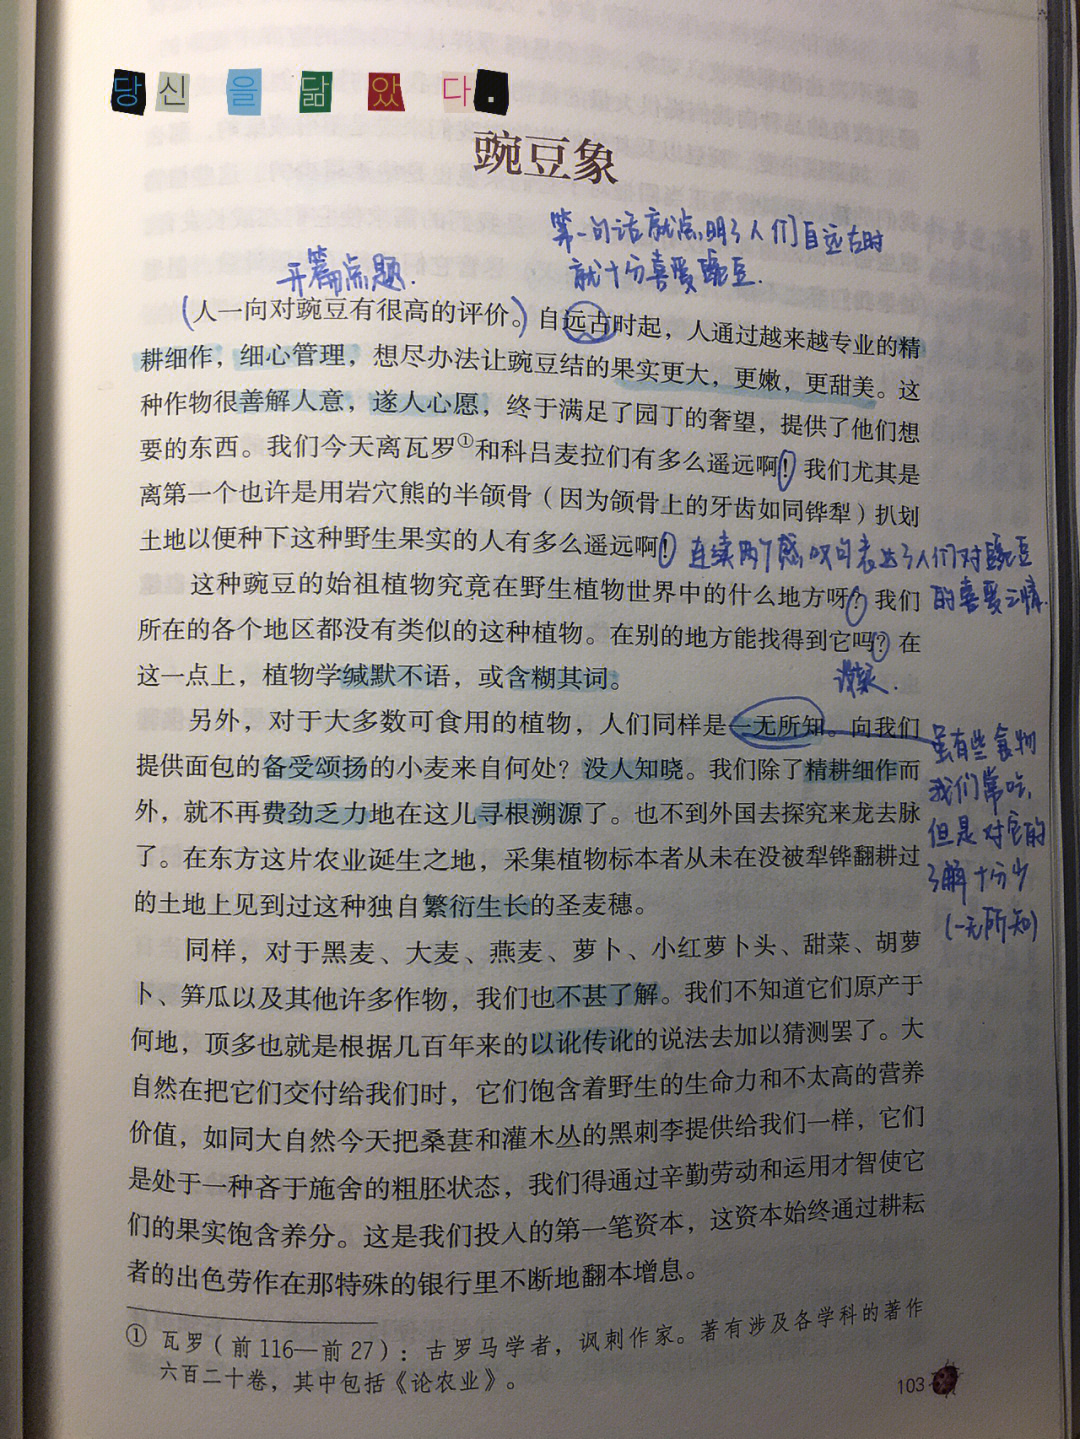 당신을닮았다.
豌豆象
第一句话就点明了人们自远古时
就十分喜爱豌豆.
开篇点题.
(人一向对豌豆有很高的评价。)自远古时起，人通过越来越专业的精
耕细作，细心管理，想尽办法让豌豆结的果实更大，更嫩，更甜美。这
种作物很善解人意，遂人心愿，终于满足了园丁的奢望，提供了他们想
要的东西。我们今天离瓦罗①和科吕麦拉们有多么遥远啊！我们尤其是
离第一个也许是用岩穴熊的半颌骨（因为颌骨上的牙齿如同铧犁）扒划
土地以便种下这种野生果实的人有多么遥远啊！
连续两个感叹句表达了人们对豌豆
的喜爱之情.
这种豌豆的始祖植物究竟在野生植物世界中的什么地方呀？我们
所在的各个地区都没有类似的这种植物。在别的地方能找得到它吗？在
这一点上，植物学缄默不语，或含糊其词。
另外，对于大多数可食用的植物，人们同样是一无所知。向我们
提供面包的备受颂扬的小麦来自何处？没人知晓。我们除了精耕细作而
外，就不再费劲乏力地在这儿寻根溯源了。也不到外国去探究来龙去脉
了。在东方这片农业诞生之地，采集植物标本者从未在没被犁铧翻耕过
的土地上见到过这种独自繁衍生长的圣麦穗。
虽有些食物
我们常吃,
但是对它的
了解十分少
(一无所知)
同样，对于黑麦、大麦、燕麦、萝卜、小红萝卜头、甜菜、胡萝
卜、笋瓜以及其他许多作物，我们也不甚了解。我们不知道它们原产于
何地，顶多也就是根据几百年来的以讹传讹的说法去加以猜测罢了。大
自然在把它们交付给我们时，它们饱含着野生的生命力和不太高的营养
价值，如同大自然今天把桑葚和灌木丛的黑刺李提供给我们一样，它们
是处于一种吝于施舍的粗胚状态，我们得通过辛勤劳动和运用才智使它
们的果实饱含养分。这是我们投入的第一笔资本，这资本始终通过耕耘
者的出色劳作在那特殊的银行里不断地翻本增息。
① 瓦罗（前116—前27）：古罗马学者，讽刺作家。著有涉及各学科的著作
六百二十卷，其中包括《论农业》。
103